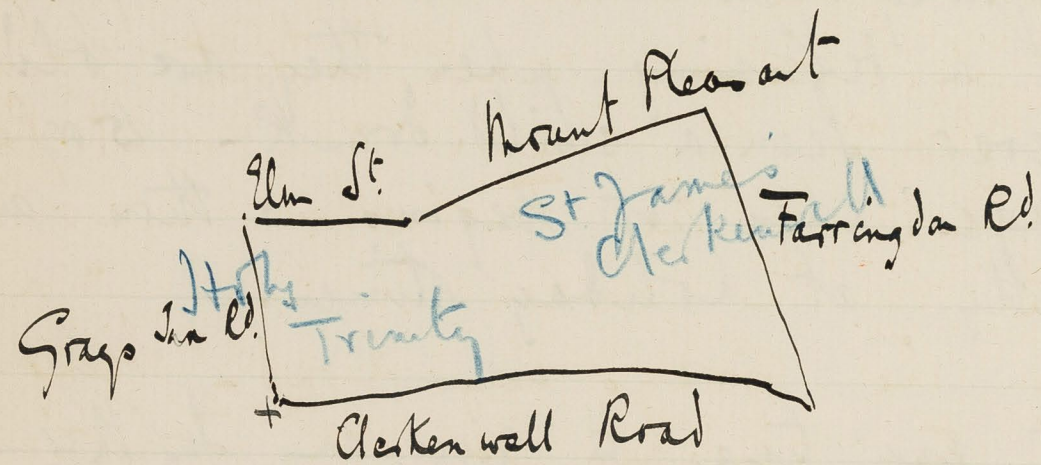 Mount Pleasant
Elm St.
St James
Clerkenwell
Farringdon Rd.
Holy
Trinity
Grays Inn Rd.
Clerkenwell Road